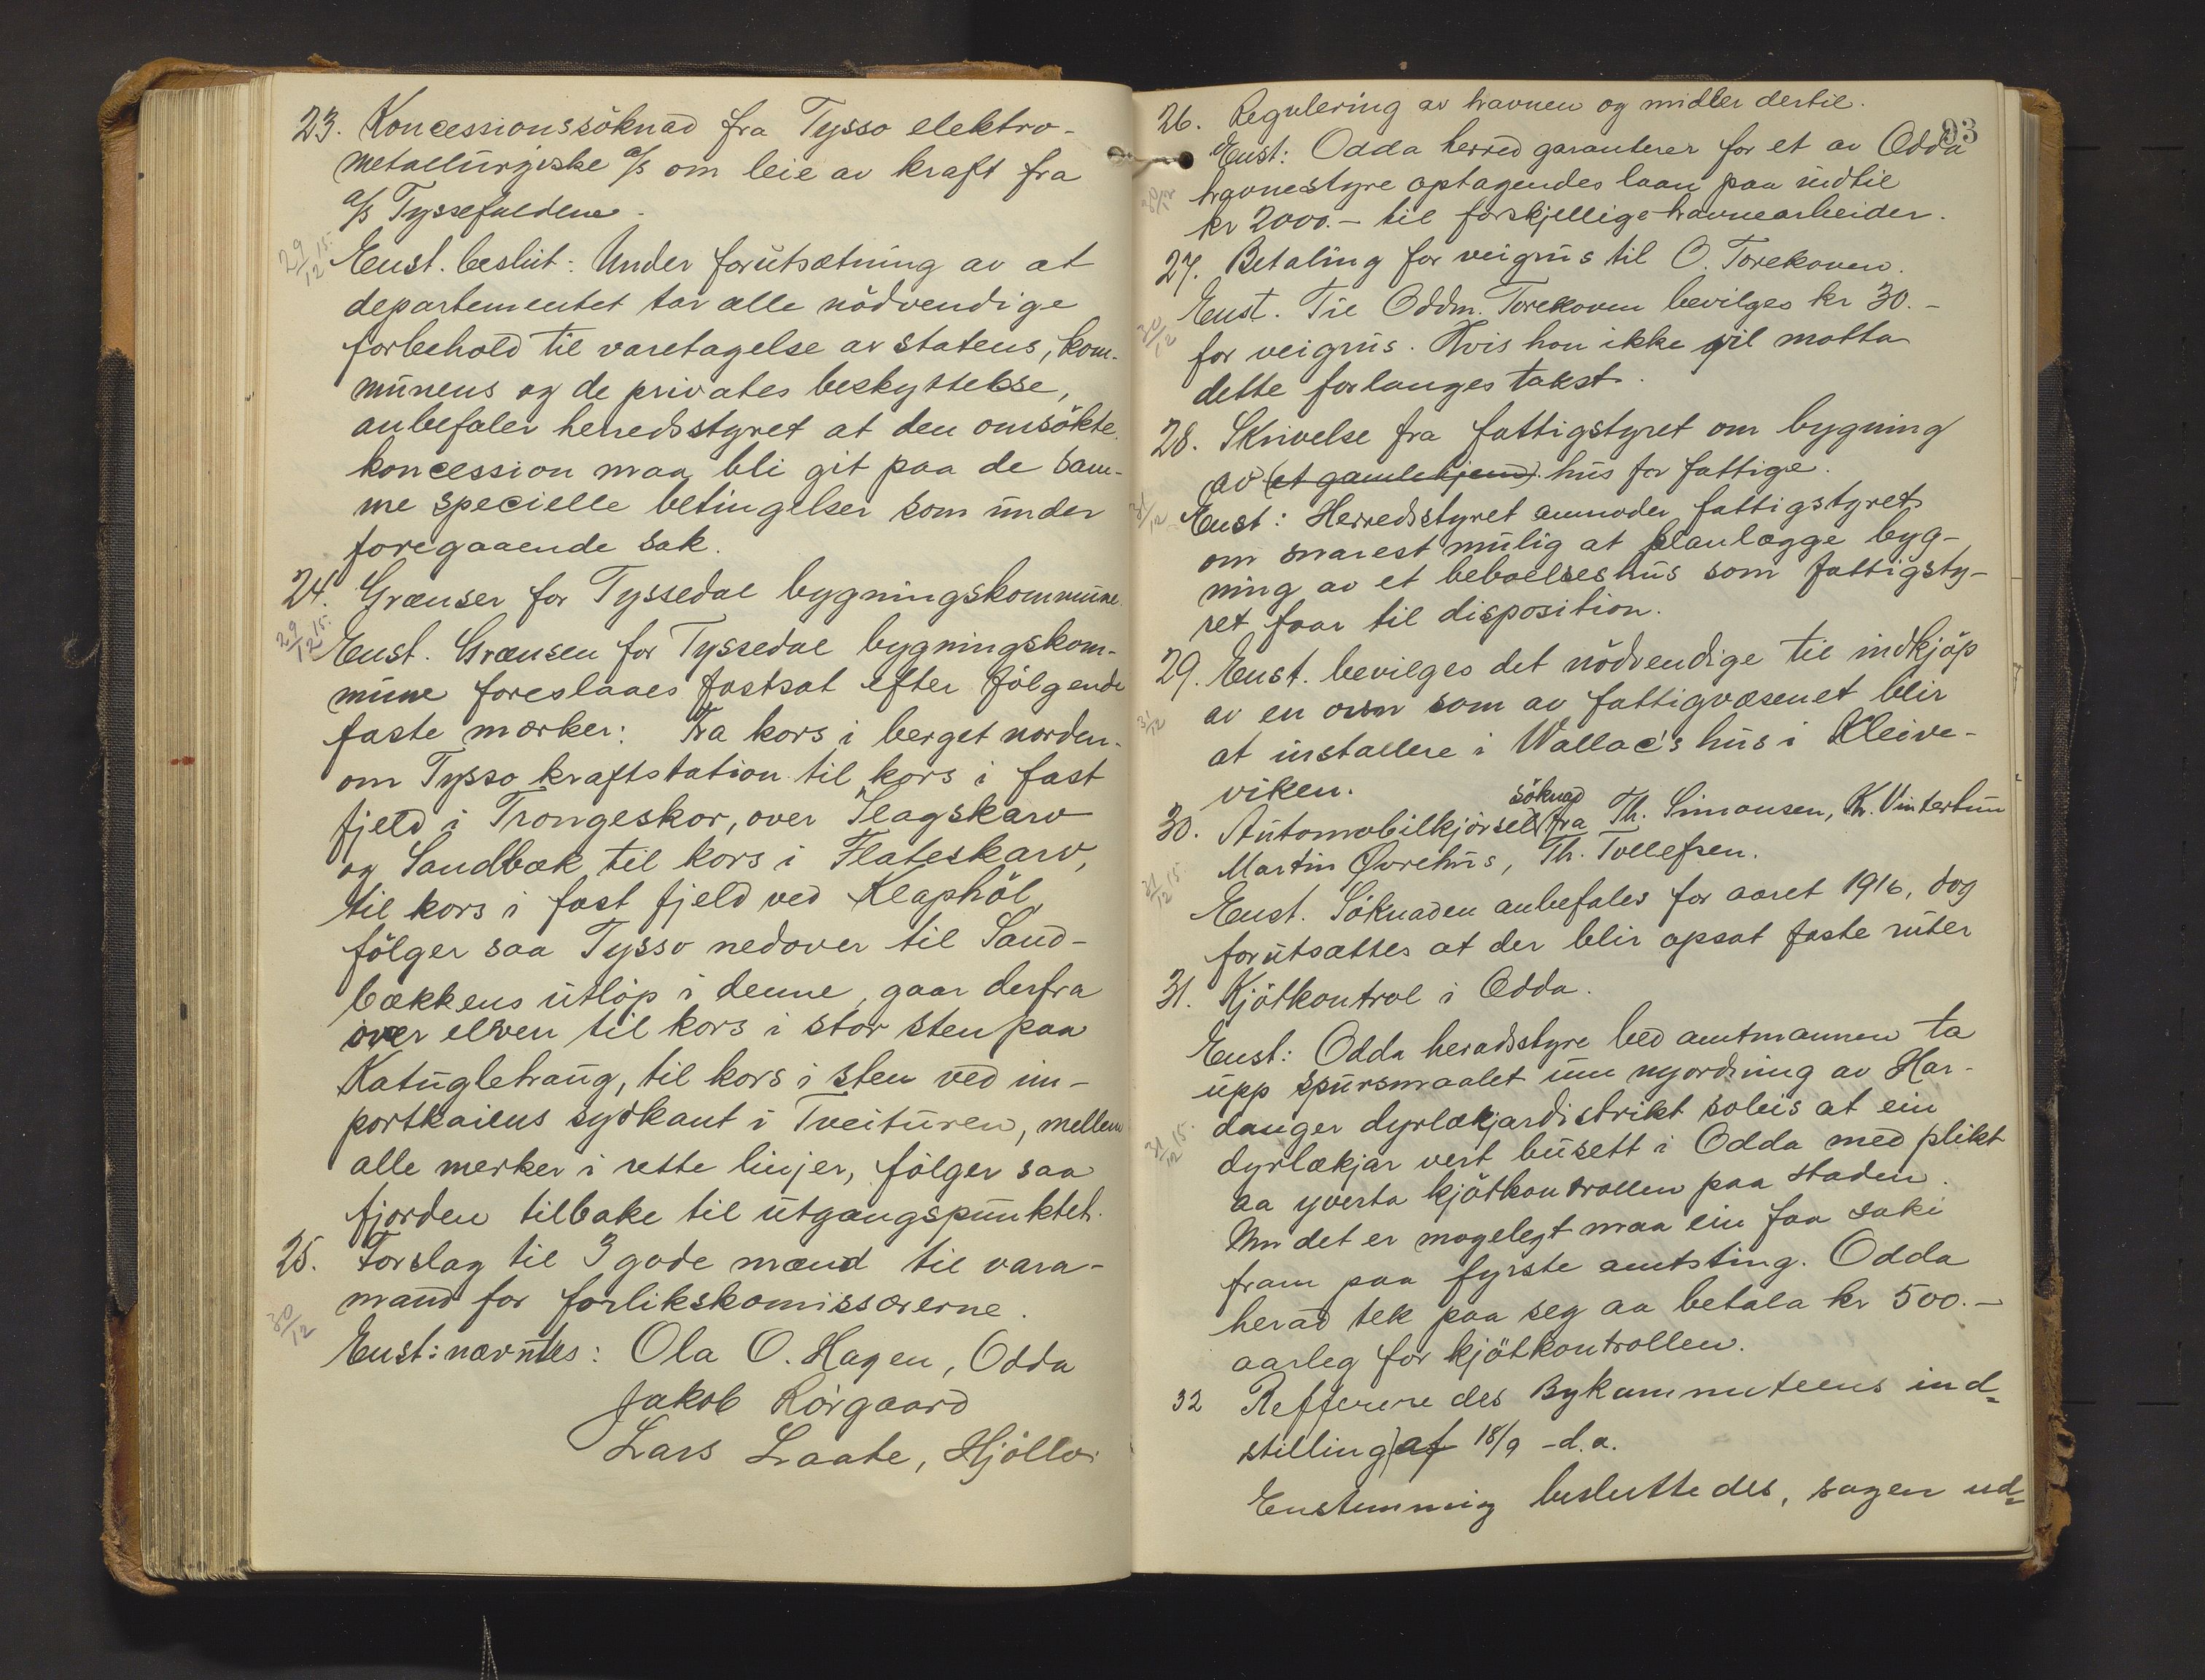 23. Koncessionssöknad fra Tysso elektro-
metallurgiske a/s om leie av kraft fra
a/s Tyssefaldene.
29/12 15.
Enst. beslut: Under forutsætning av at
departementet tar alle nödvendige
forbehold til varetagelse av statens, kom-
munens og de privates beskyttelse,
anbefaler herredsstyret at den omsökte
koncession maa bli git paa de sam-
me specielle betingelser som under
foregaaende sak.
24. Grænser for Tyssedal bygningskommune.
29/12 15.
Enst. Grænsen for Tyssedal bygningskom-
mune foreslaaes fastsat efter fölgende
faste mærker: Fra kors i berget norden-
om Tysso kraftstation til kors i fast
fjeld i Trongeskor, over Slagskarv
og Sandbæk til kors i Flateskarv,
til kors i fast fjeld ved Klaphöl,
fölger saa Tysso nedover til Sand-
bækkens utlöp i denne, gaar derfra
over elven til kors i stor sten paa
Katuglehaug, til kors i sten ved im-
portkaiens sydkant i Tveituren, mellem
alle merker i rette linjer, fölger saa
fjorden tilbake til utgangspunktet.
25. Forslag til 3 gode mænd til vara-
mand for forlikskomissærerne.
30/12
Enst: nævntes: Ola O. Hagen, Odda
Jakob Rörgaard
Lars Laate, Hjöllo
93
26. Regulering av havnen og midler dertil.
Enst: Odda herred garanterer for et av Odda
30/12
havnestyre optagendes laan paa indtil
kr 2000.- til forskjellige havnearbeider.
27. Betaling for veigrus til O. Torekoven.
Enst. Til Oddm. Torekoven bevilges kr 30.-
30/12
for veigrus. Hvis hon ikke vil motta
dette forlanges takst.
28. Skrivelse fra fattigstyret om bygning
av (et gamlehjem) hus for fattige.
31/12
Enst: Herredsstyret anmoder fattigstyret
om snarest mulig at planlægge byg-
ning av et beboelseshus som fattigsty-
ret faar til disposition.
29. Enst. bevilges det nödvendige til indkjöp
31/12
av en ovn som av fattigvæsenet blir
at installere i Wallac's hus i Kleive-
viken.
30. Automobilkjörsel söknad fra Th. Simonsen, Kr. Vintertun
Martin Øvrehus, Th. Tollefsen.
31/12 15.
Enst. Söknaden anbefales for aaret 1916, dog
forutsættes at der blir opsat faste ruter
31. Kjötkontrol i Odda.
Enst: Odda heradsstyre bed amtmannen ta
upp spursmaalet um nyordning av Har-
danger dyrlækjardistrikt soleis at ein
31/12 15.
dyrlækjar vert busett i Odda med plikt
aa yverta kjötkontrollen paa staden.
Um det er mogelegt maa ein faa saki
fram paa fyrste amtsting. Odda
herad tek paa seg aa betala kr 500.-
aarleg for kjötkontrollen.
32 Refferere des Bykammuteens ind=
stilling af 18/9 -d.a.
Enstemmig besluttedes, sagen ud=